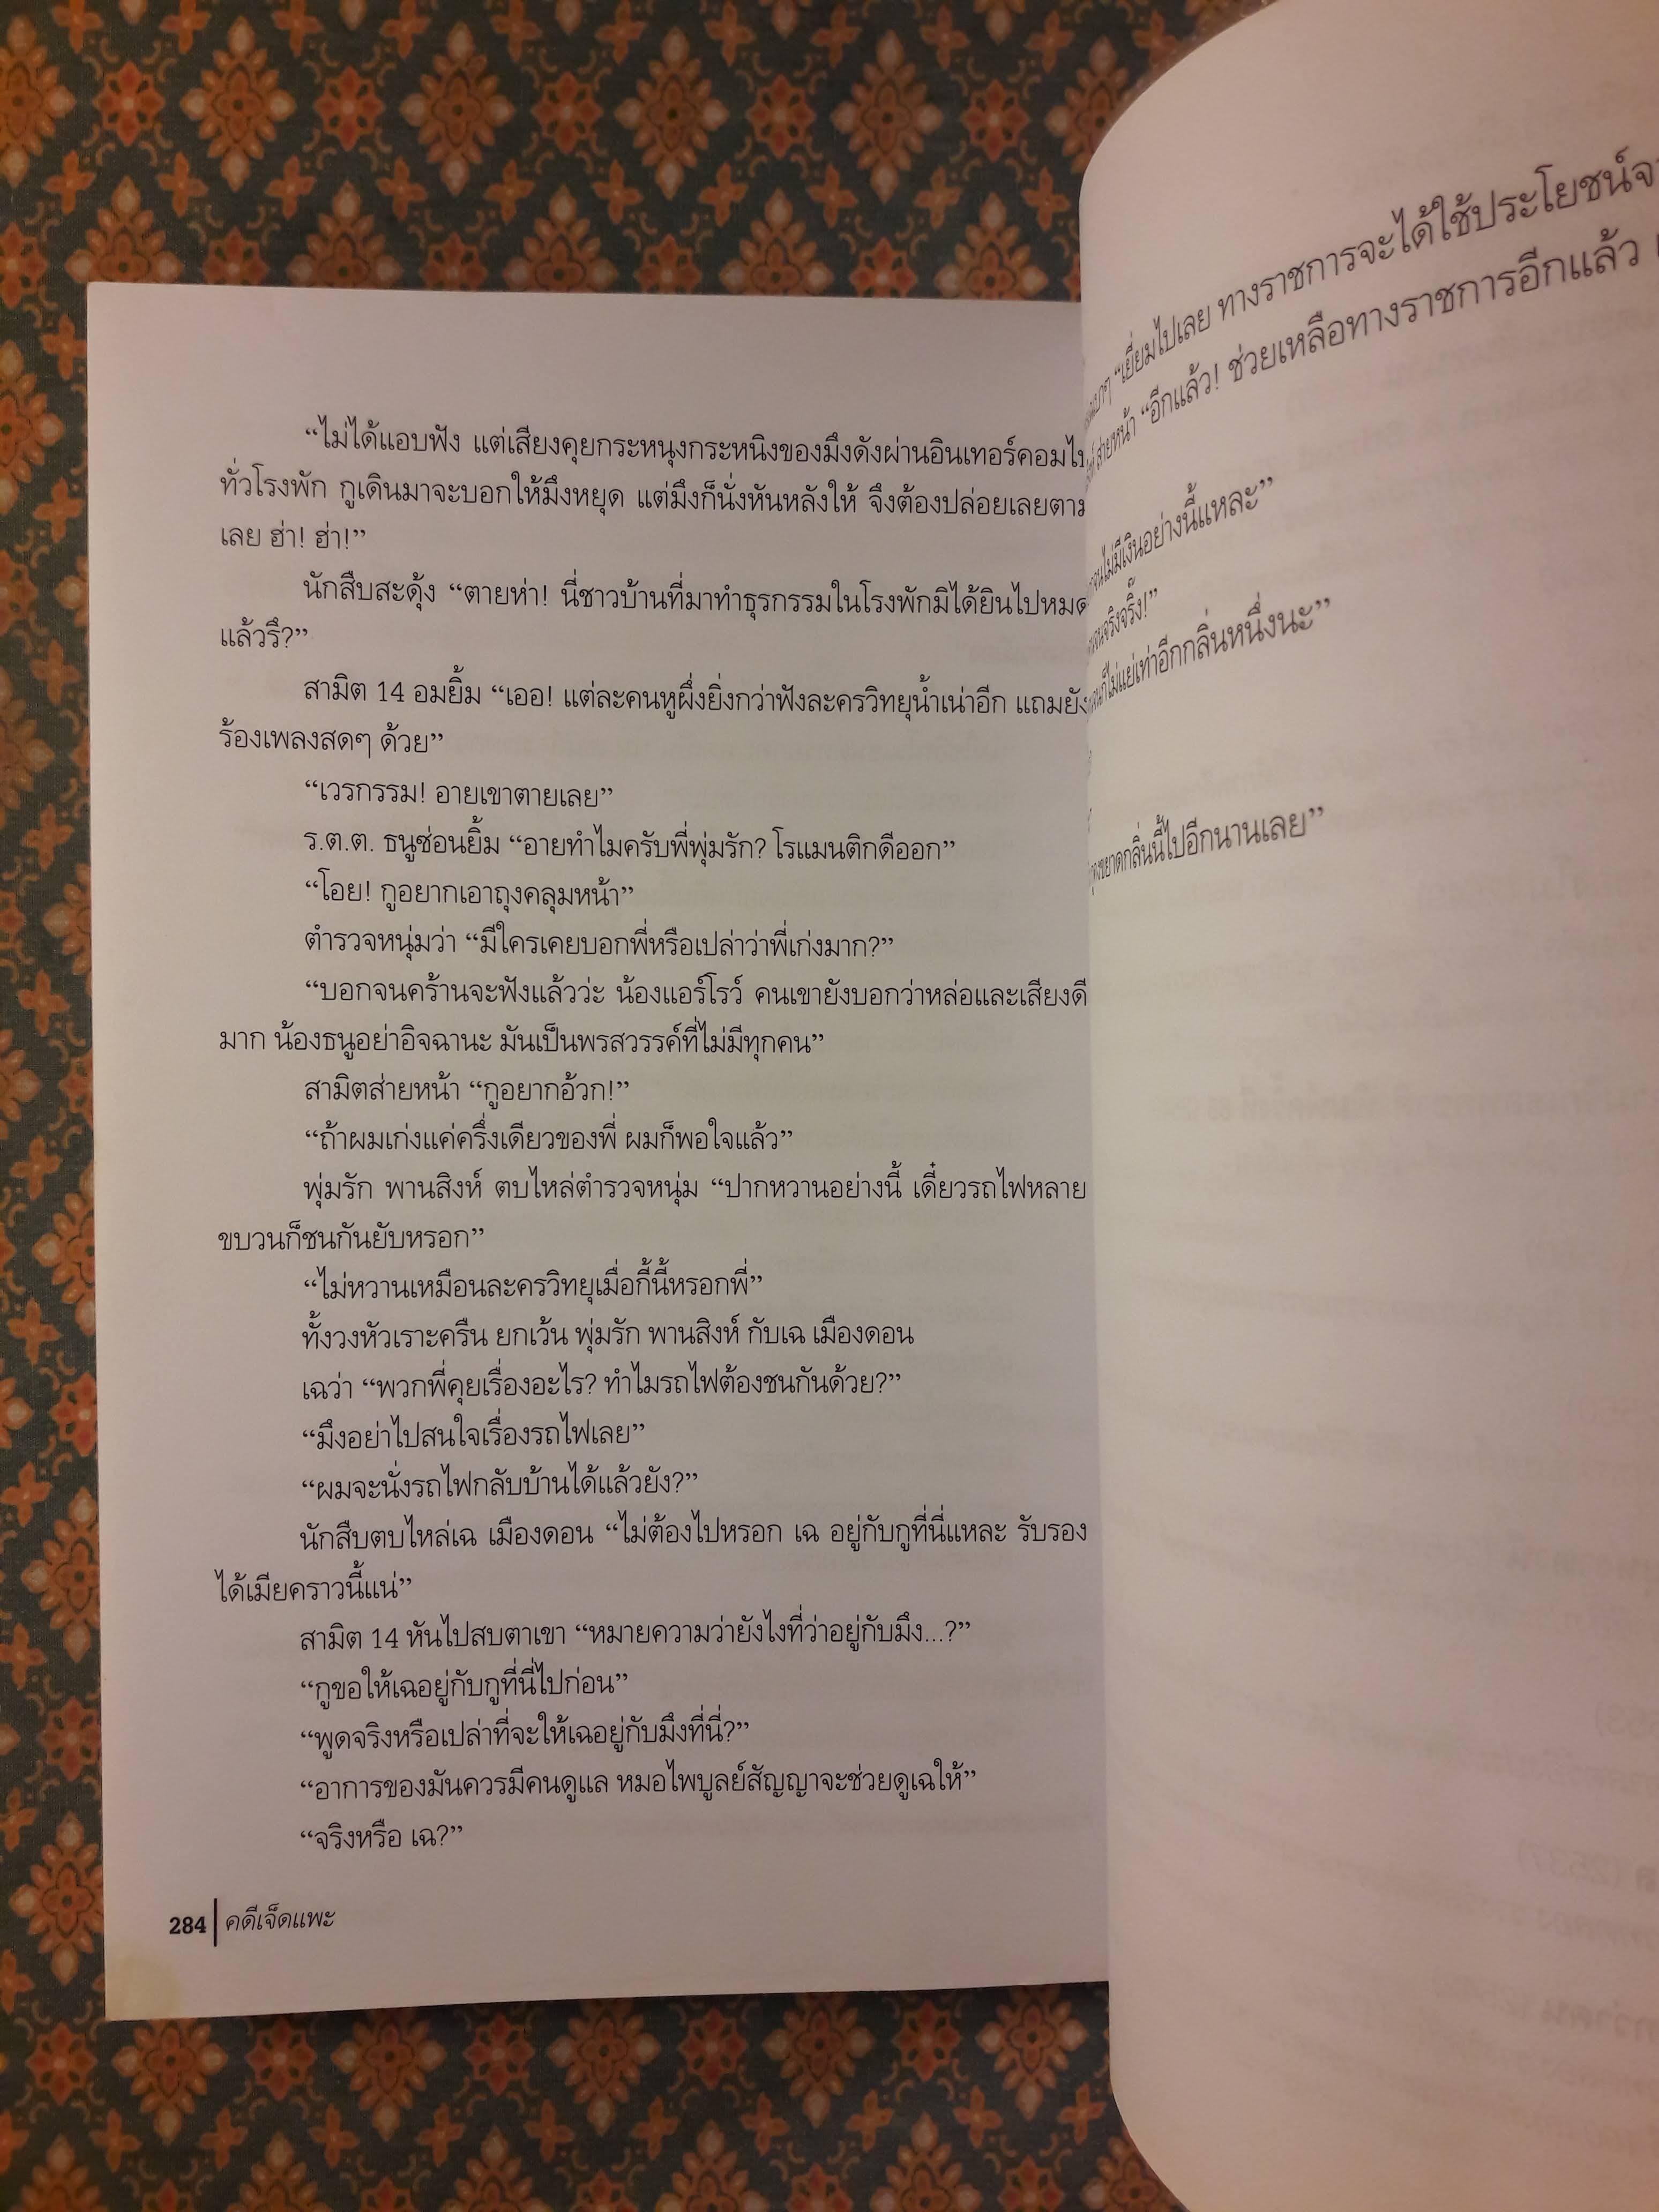 “ไม่ได้แอบฟัง แต่เสียงคุยกระหนุงกระหนิงของมึงดังผ่านอินเทอร์คอมไป
ทั่วโรงพัก กูเดินมาจะบอกให้มึงหยุด แต่มึงก็นั่งหันหลังให้ จึงต้องปล่อยเลยตาม
เลย ฮ่า! ฮ่า!”
นักสืบสะดุ้ง “ตายห่า! นี่ชาวบ้านที่มาทำธุรกรรมในโรงพักมิได้ยินไปหมด
แล้วรึ?”
สามิต 14 อมยิ้ม “เออ! แต่ละคนหูผึ่งยิ่งกว่าฟังละครวิทยุน้ำเน่าอีก แถมยัง
ร้องเพลงสดๆ ด้วย”
“เวรกรรม! อายเขาตายเลย”
ร.ต.ต. ธนูซ่อนยิ้ม “อายทำไมครับพี่พุ่มรัก? โรแมนติกดีออก”
“โอย! กูอยากเอาถุงคลุมหน้า”
ตำรวจหนุ่มว่า “มีใครเคยบอกพี่หรือเปล่าว่าพี่เก่งมาก?”
“บอกจนคร้านจะฟังแล้วว่ะ น้องแอร์โรว์ คนเขายังบอกว่าหล่อและเสียงดี
มาก น้องธนูอย่าอิจฉานะ มันเป็นพรสวรรค์ที่ไม่มีทุกคน”
สามิตส่ายหน้า “กูอยากอ้วก!”
“ถ้าผมเก่งแค่ครึ่งเดียวของพี่ ผมก็พอใจแล้ว”
พุ่มรัก พานสิงห์ ตบไหล่ตำรวจหนุ่ม “ปากหวานอย่างนี้ เดี๋ยวรถไฟหลาย
ขบวนก็ชนกันยับหรอก”
“ไม่หวานเหมือนละครวิทยุเมื่อกี้นี้หรอกพี่”
ทั้งวงหัวเราะครืน ยกเว้น พุ่มรัก พานสิงห์ กับเฉ เมืองดอน
เฉว่า “พวกพี่คุยเรื่องอะไร? ทำไมรถไฟต้องชนกันด้วย?”
“มึงอย่าไปสนใจเรื่องรถไฟเลย”
“ผมจะนั่งรถไฟกลับบ้านได้แล้วยัง?”
นักสืบตบไหล่เฉ เมืองดอน “ไม่ต้องไปหรอก เฉ อยู่กับกูที่นี่แหละ รับรอง
ได้เมียคราวนี้แน่”
สามิต 14 หันไปสบตาเขา “หมายความว่ายังไงที่ว่าอยู่กับมึง...?”
“กูขอให้เฉอยู่กับกูที่นี่ไปก่อน”
“พูดจริงหรือเปล่าที่จะให้เฉอยู่กับมึงที่นี่?”
“อาการของมันควรมีคนดูแล หมอไพบูลย์สัญญาจะช่วยดูเฉให้”
“จริงหรือ เฉ?”
284 คดีเจ็ดแพะ
“เยี่ยมไปเลย ทางราชการจะได้ใช้ประโยชน์
ส่ายหน้า “อีกแล้ว! ช่วยเหลือทางราชการอีกแล้ว
ไม่มีเงินอย่างนี้แหละ”
จริงจริ๊ง!”
ก็ไม่แย่เท่าอีกกลิ่นหนึ่งนะ”
ขยาดกลิ่นนี้ไปอีกนานเลย”